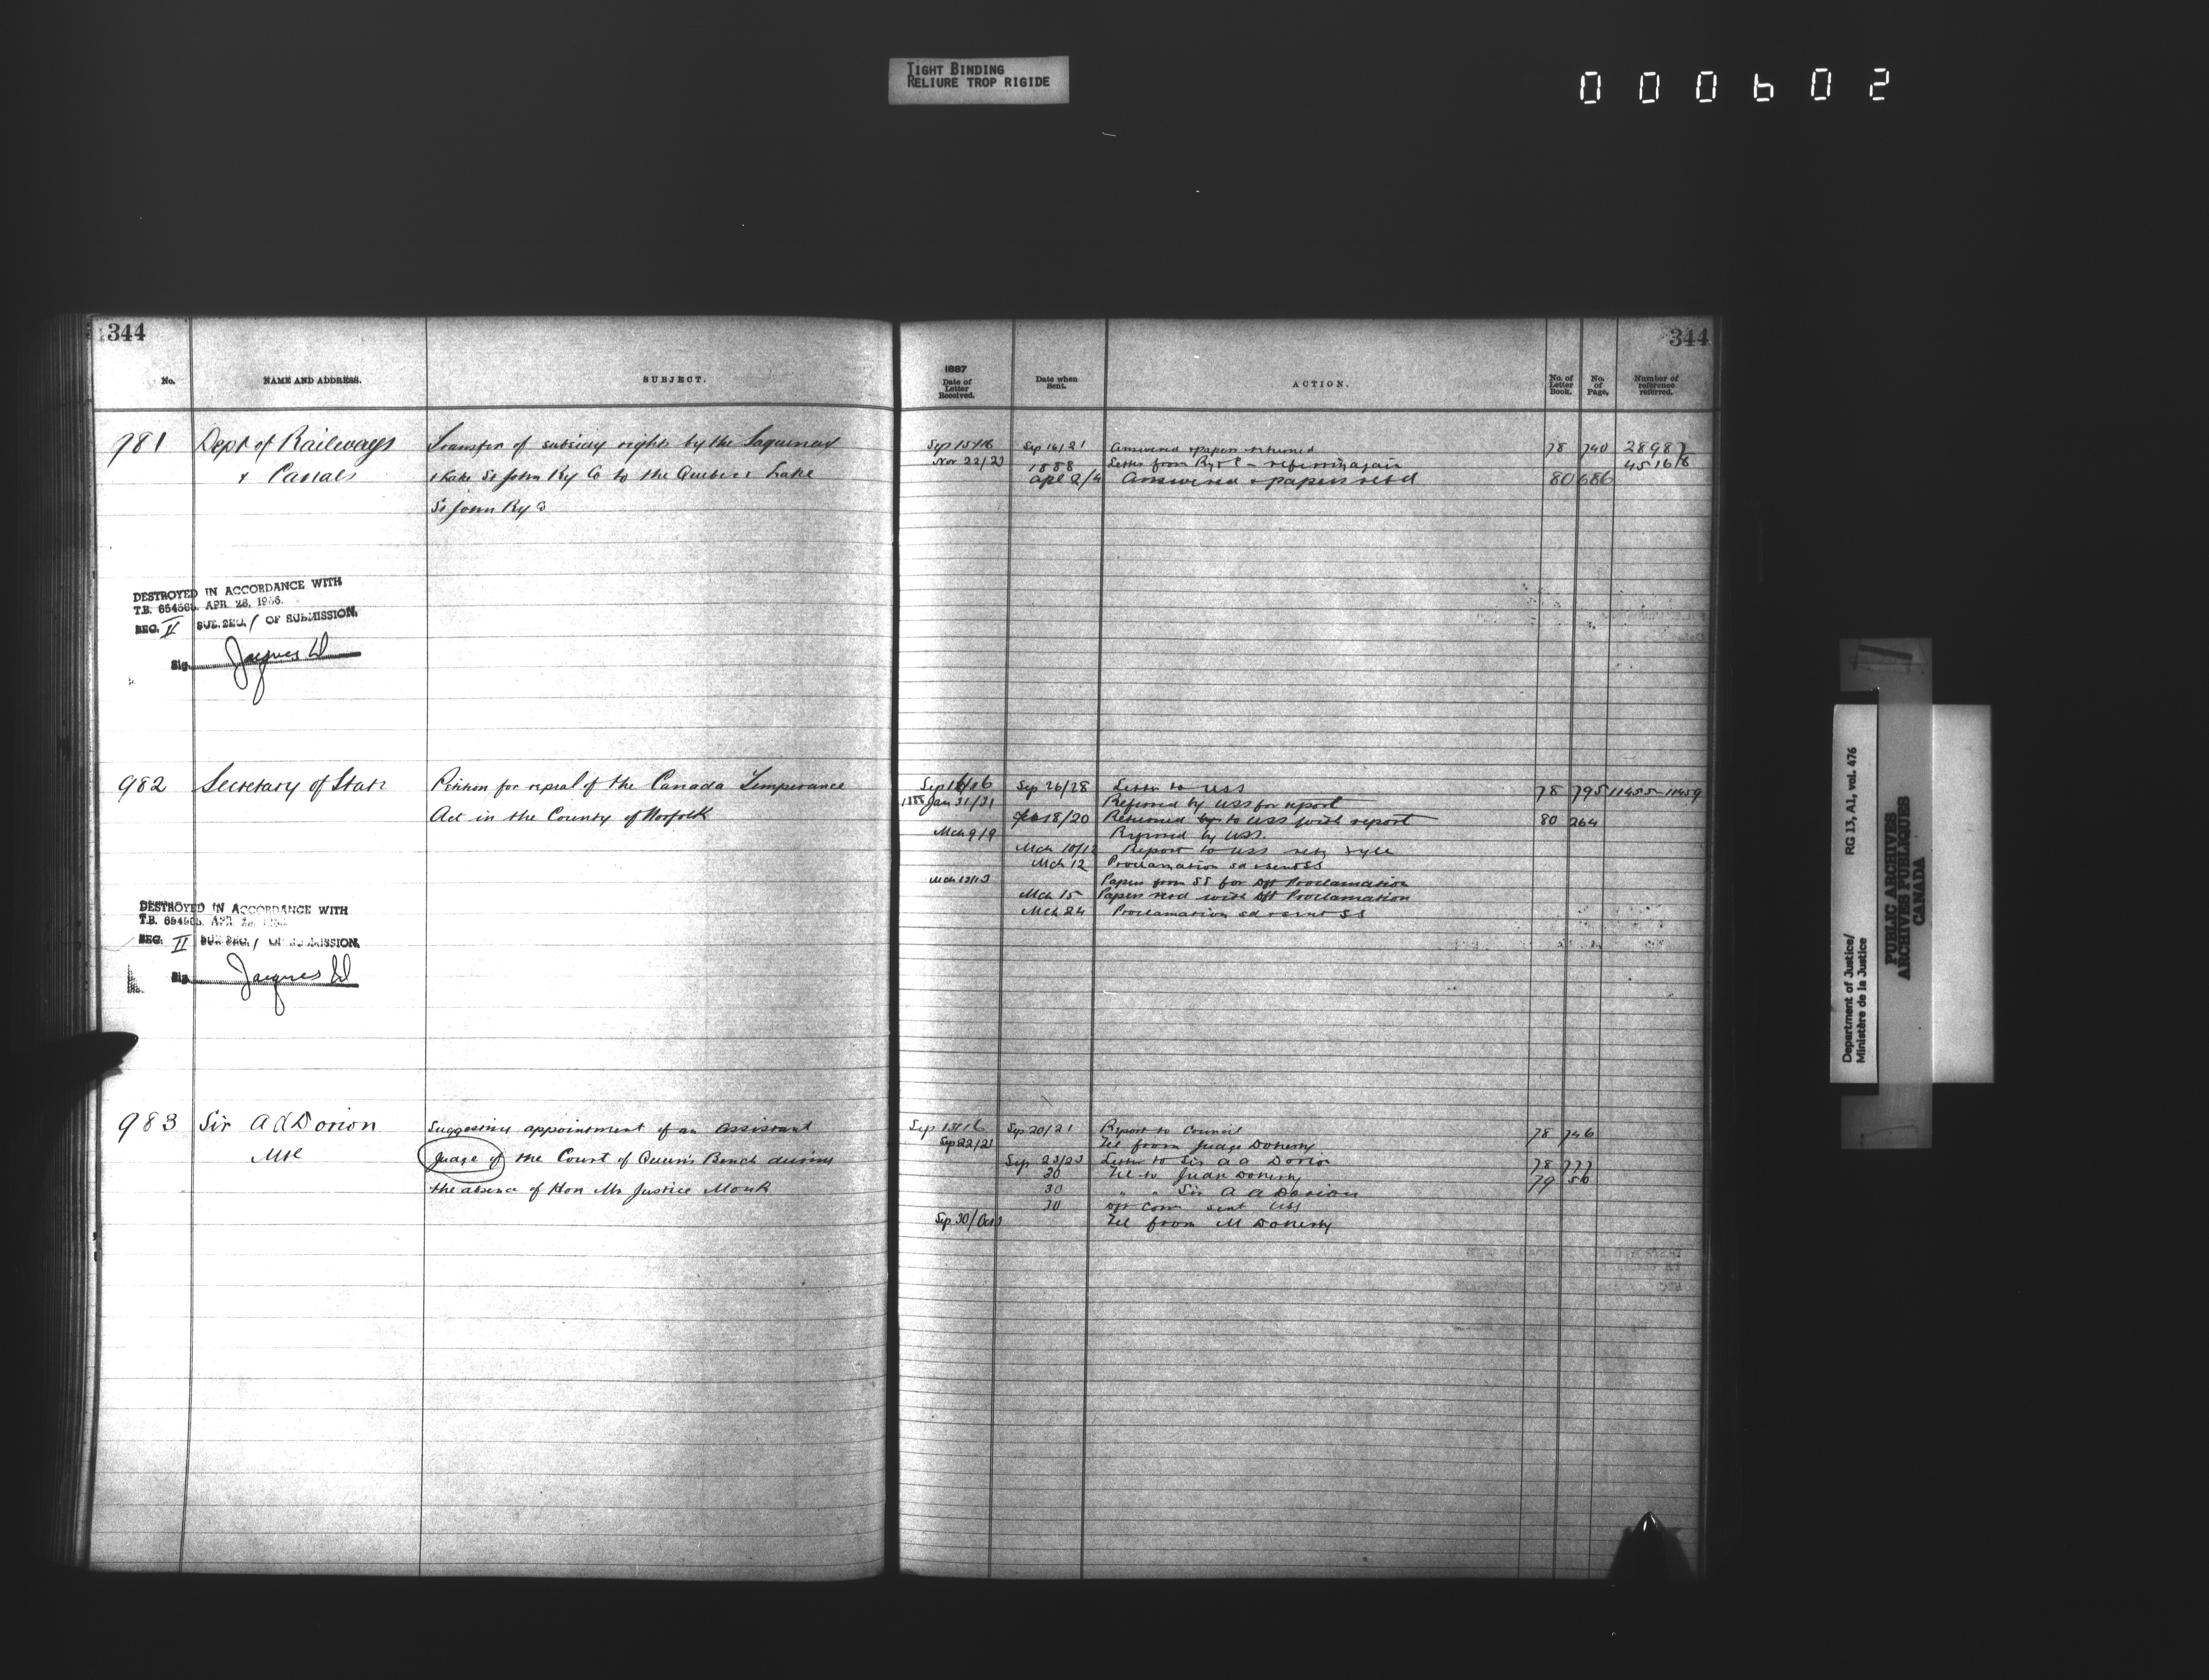 TIGHT BINDING
RELIURE TROP RIGIDE
000602
344
344
No. NAME AND ADDRESS. SUBJECT.
1887
Date of Letter Received. Date when Sent. ACTION. No. of Letter Book. No. of Page. Number of reference referred.
981 Dept of Railways Transfer of subsidy rights by the Saguenay
& Canals & Lake St John Ry Co to the Quebec & Lake
St John Ry Co
Sep 15/16 Sep 16/21 Answered & papers returned 78 740 28987
Nov 22/23 1888 Letter from Ry & C - referring again 4516/8
Apl 2/4 Answered & papers retd 80 686
DESTROYED IN ACCORDANCE WITH
T.B. 654565. APR 26, 1956.
SEC. II SUB. SEC. 1 OF SUBMISSION.
Sig. Jacques
982 Secretary of State Petition for repeal of the Canada Temperance
Act in the County of Norfolk
Sep 16/16 Sep 26/28 Letter to USS 78 795 11455-11459
1888 Jan 31/31 Referred by USS for report
Feb 18/20 Returned to USS with report 80 264
Mch 9/9 by USS.
Mch 10/12 Report to USS
Mch 12 Proclamation sd & sent SS
Mch 13/13 Papers from SS for Dft Proclamation
Mch 15 Papers retd with Dft Proclamation
Mch 24 Proclamation sd & sent SS
DESTROYED IN ACCORDANCE WITH
T.B. 654565. APR
SEC. II SUB SEC. 1 OF SUBMISSION.
Sig. Jacques
983 Sir A A Dorion Suggesting appointment of an Assistant
Mtl Judge of the Court of Queen's Bench during
the absence of Hon Mr Justice Monk
Sep 15/16 Sep 20/21 Report to Council 78 746
Sep 22/21 Tel from Judge Doherty
Sep 23/23 Letter to Sir A A Dorion 78 777
30 Tel to Judge Doherty 79 50
30 " " Sir A A Dorion
30 Com sent USS
Sep 30/Oct 1 Tel from M Doherty
Department of Justice/
Ministère de la Justice
RG 13, A1, vol. 476
PUBLIC ARCHIVES
ARCHIVES PUBLIQUES
CANADA